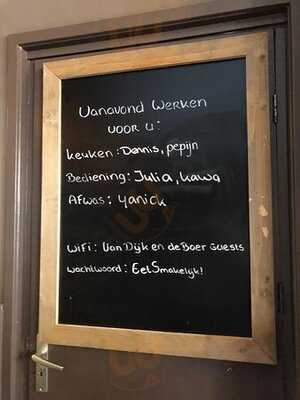 Vanavond Werken
voor u:
keuken: Dennis, pepijn
Bediening: Julia, kawa
Afwas: yanick
wifi: Van Dijk en de Boer Guests
wachtwoord: EetSmakelijk!